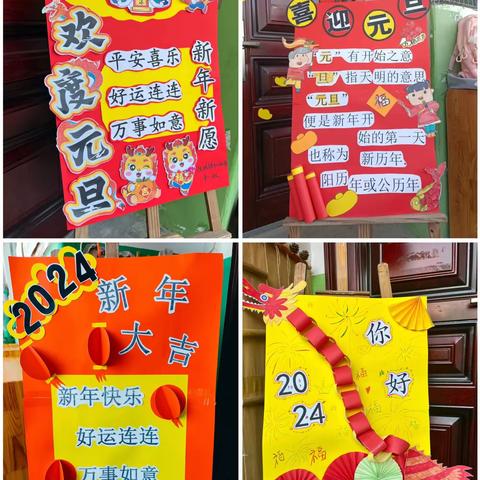 欢度元旦
新年新愿
平安喜乐
好运连连
万事如意
喜迎元旦
“元”有开始之意
“旦”指天明的意思
“元旦”
福
便是新年开
始的第一天
也称为
新历年
阳历年或公历年
2024
新年
大吉
新年快乐
好运连连
万事如意
你好
20
24
福
福
福